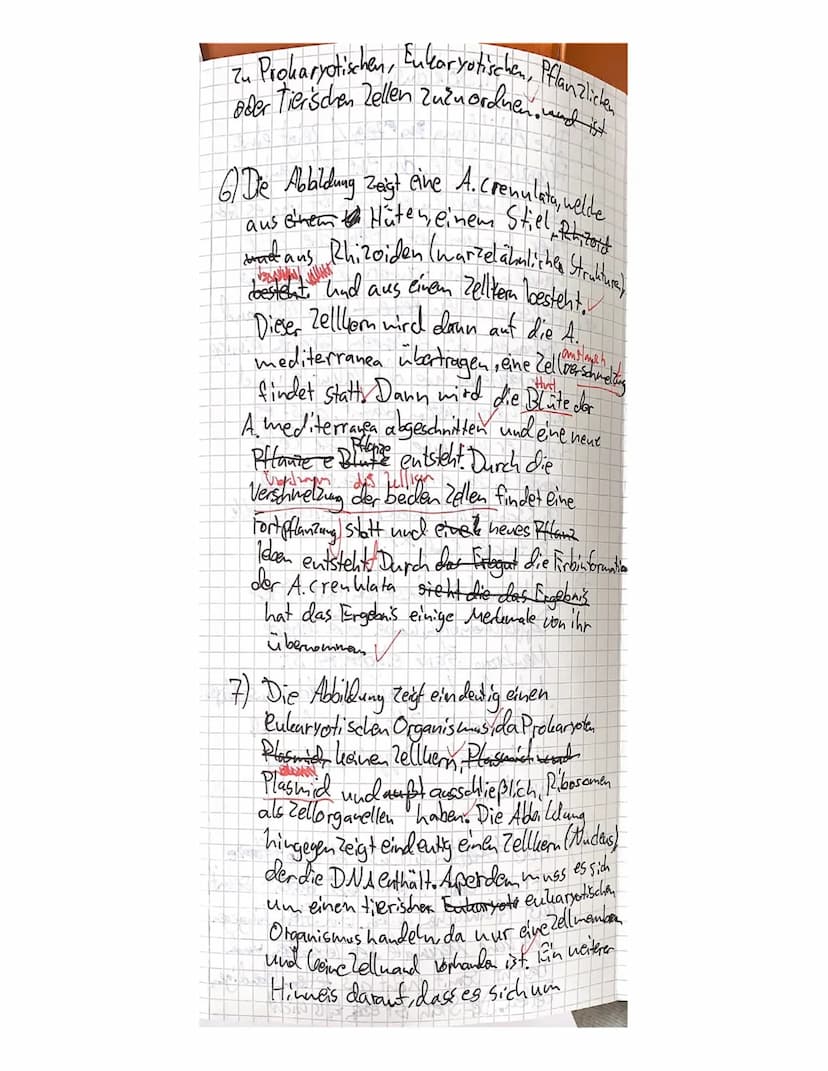 zu Prokaryotischen, Eukaryotischen, Pflanzlichen
oder Tierischen Zellen zuzuordnen. und ist
6) Die Abbildung zeigt eine A. crenulata, welche
aus einem Hüten, einem Stiel, Rhizoid
und aus Rhizoiden (wurzelähnlichen Strukturen)
besteht. Und aus einem Zellkern besteht.
Dieser Zellkern wird dann auf die A.
mediterranea übertragen, eine Zellverschmelzung
findet statt. Dann wird die Hut Blüte der
A. mediterranea abgeschnitten und eine neue
Pflanze e Blute Pflanze entsteht. Durch die
Verschmelzung der beiden Zellen findet eine
Fortpflanzung statt und ein neues Pflanz
leben entsteht. Durch das Erbgut die Erbinformation
der A. crenulata sieht die das Ergebnis
hat das Ergebnis einige Merkmale von ihr
übernommen
7) Die Abbildung zeigt eindeutig einen
eukaryotischen Organismus, da Prokaryoten
Plasmid, keinen Zellkern, Plasmid und
Plasmid und auft ausschließlich, Ribosomen
als Zellorganellen haben. Die Abbildung
hingegen zeigt eindeutig einen Zellkern (Nucleus)
der die DNA enthält. Außerdem muss es sich
um einen tierischen Eukaryote eukaryotischen
Organismus handeln, da nur eine Zellmembran
und keine Zellwand vorhanden ist. Ein weiterer
Hinweis darauf, dass es sich um